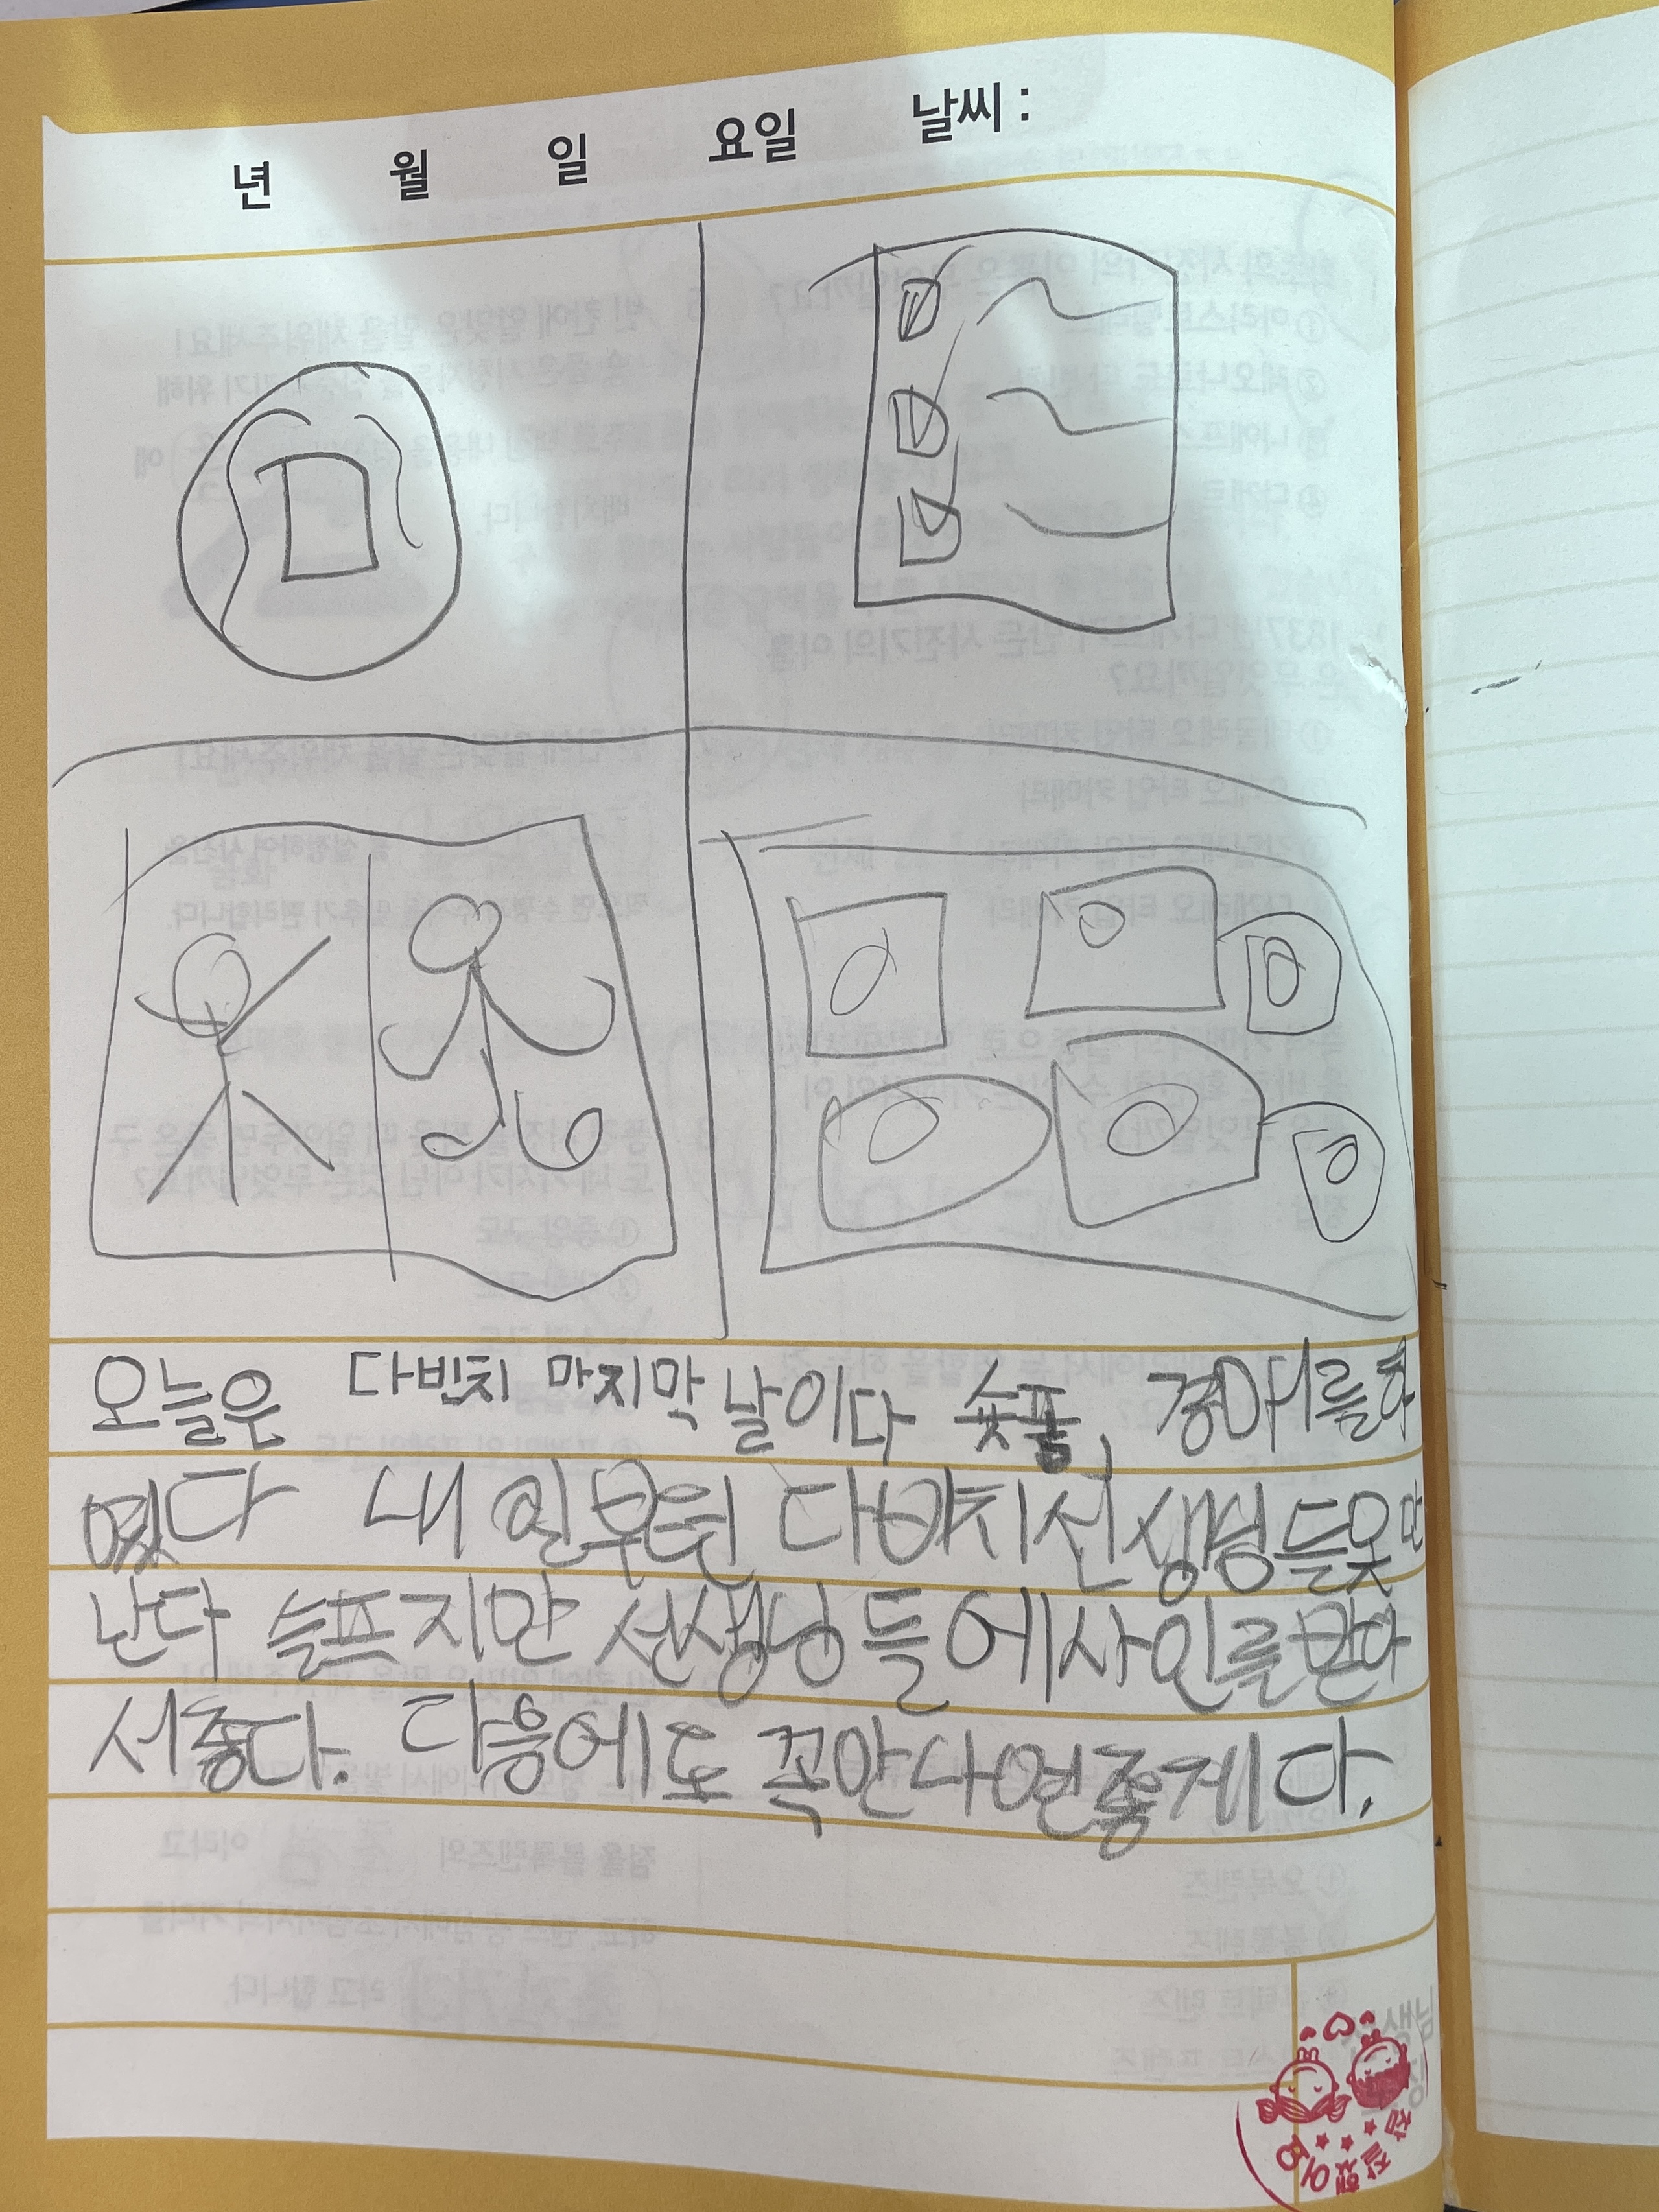 년 월 일 요일 날씨 :
오늘은 다빈치 마지막 날이다 숏폼, 경매를 하
였다 내일부턴 다빈치 선생님들 못 만
난다 슬프지만 선생님들에 사인를 받아
서 좋다. 다음에도 꼭 만나면 좋게다.
참 잘했어요